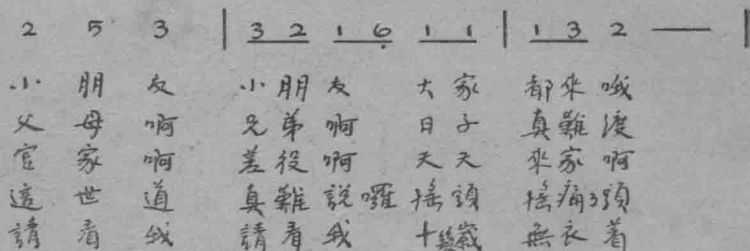 2 5 3 | 3 2 1 6̣ 1 1 | 1 3 2 — |
小 朋 友 小 朋 友 大 家 都 來 哦
父 母 啊 兄 弟 啊 日 子 真 難 渡
官 家 啊 差 役 啊 天 天 來 家 啊
這 世 道 真 難 說 囉 搖 頭 搖 痛 了 頭
請 看 我 請 看 我 十幾歲 無 衣 着